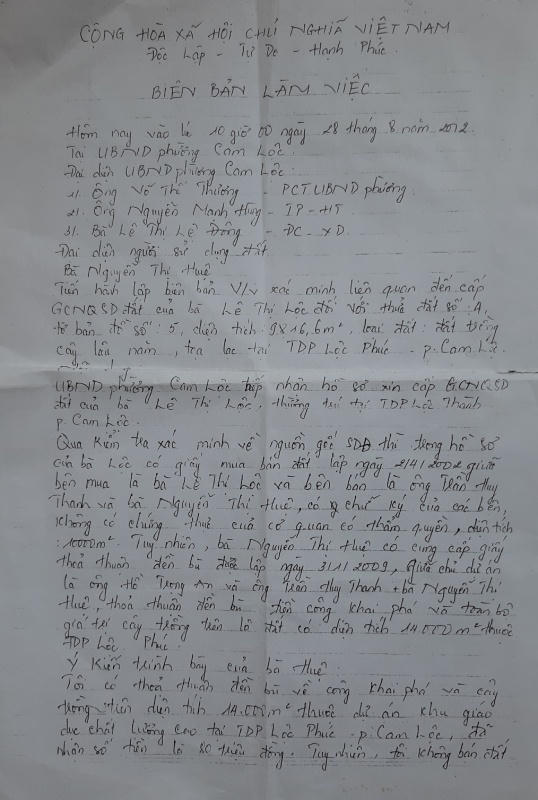 CỘNG HÒA XÃ HỘI CHỦ NGHĨA VIỆT NAM
Độc Lập - Tự Do - Hạnh Phúc.
BIÊN BẢN LÀM VIỆC
Hôm nay vào lúc 10 giờ 00 ngày 28 tháng 8 năm 2012.
Tại UBND phường Cam Lộc.
Đại diện UBND phường Cam Lộc:
1/. Ông Võ Thế Thương - PCT UBND phường.
2/. Ông Nguyễn Mạnh Hùng - TP-HT
3/. Bà Lê Thị Lệ Đông - ĐC-XD.
Đại diện người sử dụng đất
Bà Nguyễn Thị Huê
Tiến hành lập biên bản V/v xác minh liên quan đến cấp
GCNQSD đất của bà Lê Thị Lộc đối với thửa đất số: A,
tờ bản đồ số: 5, diện tích: 9X16,6m², loại đất: đất trồng
cây lâu năm, tọa lạc tại TDP Lộc Phúc - p. Cam Lộc.
UBND phường Cam Lộc tiếp nhận hồ sơ xin cấp GCNQSD
đất của bà Lê Thị Lộc, thường trú tại TDP Lộc Thành
p. Cam Lộc.
Qua kiểm tra xác minh về nguồn gốc SDĐ thì trong hồ sơ
của bà Lộc có giấy mua bán đất lập ngày 2/4/2002 giữa
bên mua là bà Lê Thị Lộc và bên bán là ông Trần Huy
Thanh và bà Nguyễn Thị Huê, có chữ ký của các bên,
không có chứng thực của cơ quan có thẩm quyền, diện tích
: 1000m². Tuy nhiên, bà Nguyễn Thị Huê có cung cấp giấy
thoả thuận đền bù lập ngày 3/11/2009, giữa chủ dự án
là ông Hồ Trọng An và ông Trần Huy Thanh + bà Nguyễn Thị
Huê, thoả thuận đền bù tiền công khai phá và toàn bộ
giá trị cây trồng trên lô đất có diện tích 14.000m² thuộc
TDP Lộc Phúc.
Ý kiến trình bày của bà Huê:
Tôi có thoả thuận đền bù về công khai phá và cây
trồng trên diện tích 14.000m² thuộc dự án khu giáo
dục chất lượng cao tại TDP Lộc Phúc - p. Cam Lộc, đã
nhận số tiền là 80 triệu đồng. Tuy nhiên, tôi không bán đất